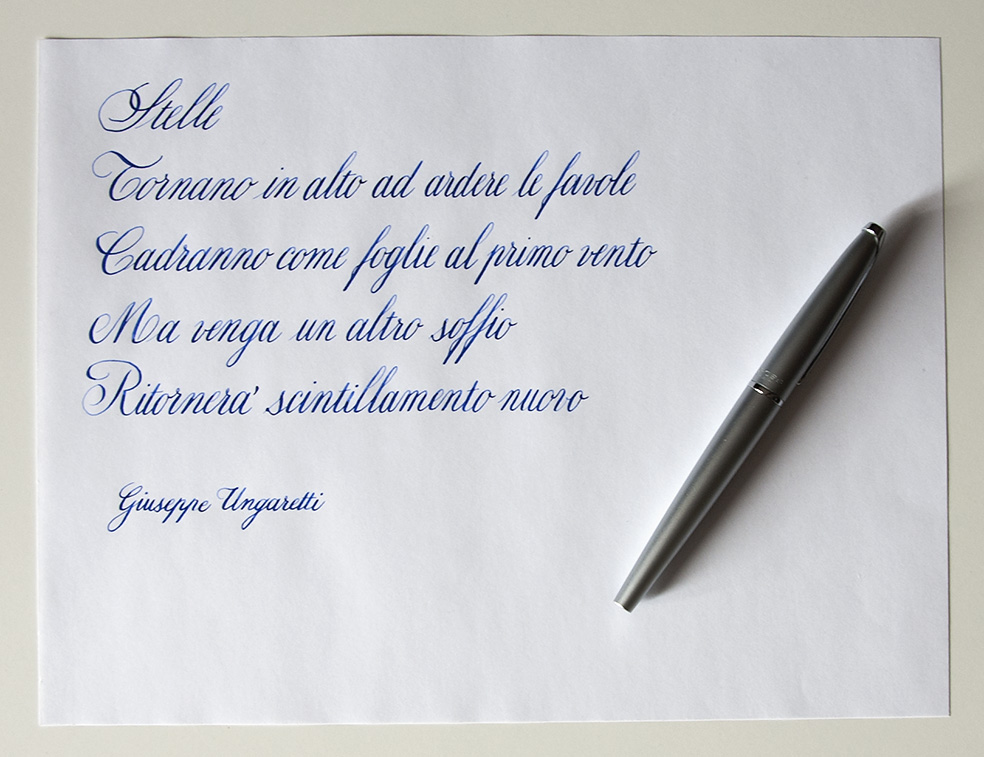 Stelle
Tornano in alto ad ardere le favole
Cadranno come foglie al primo vento
Ma venga un altro soffio
Ritornera' scintillamento nuovo
Giuseppe Ungaretti